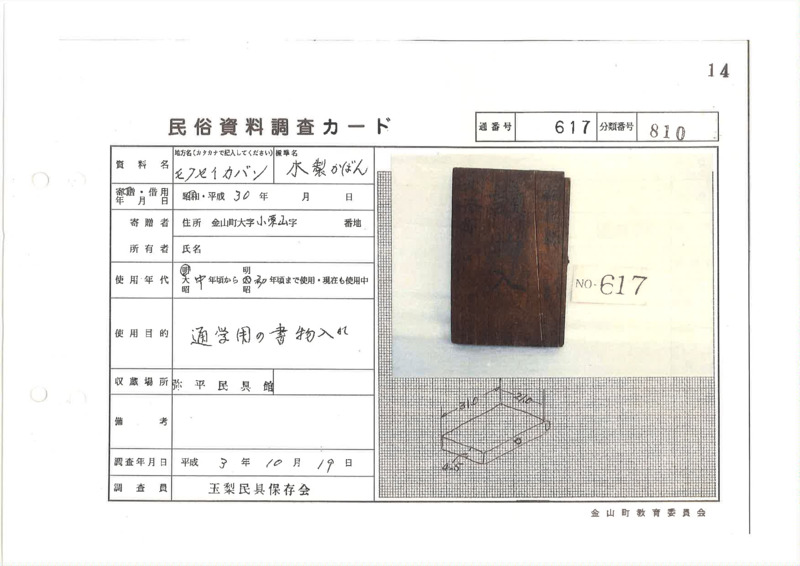 14
民俗資料調査カード
通番号 617 分類番号 810
資料名 地方名(カタカナで記入してください) モクセイカバン 標準名 木製かばん
寄贈・借用年月日 昭和・平成 30年 月 日
寄贈者 住所 金山町大字小栗山字 番地
所有者 氏名
使用年代 明 大 昭 中年頃から 明 大 昭 30年頃まで使用・現在も使用中
使用目的 通学用の書物入れ
収蔵場所 弥平民具館
備考
調査年月日 平成 3年 10月 19日
調査員 玉梨民具保存会
入
NO-617
310
210
4.5
金山町教育委員会